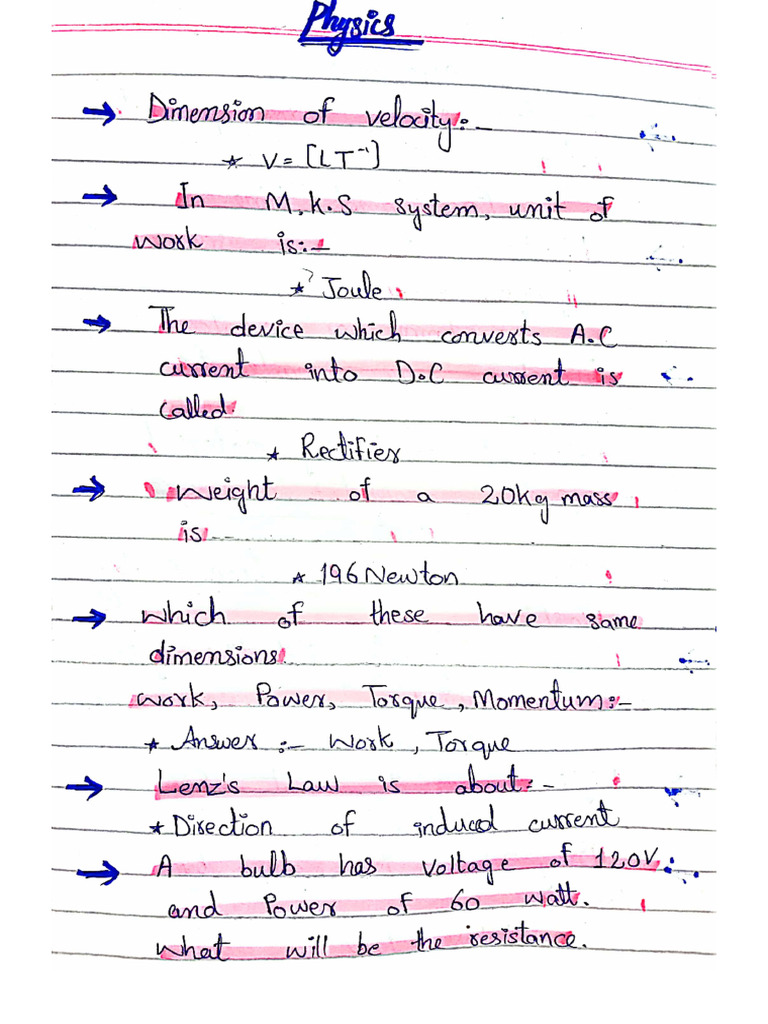 Physics
→ Dimension of velocity:-
* V = [LT⁻¹]
→ In M.K.S system, unit of
work is:-
* Joule
→ The device which converts A.C
current into D.C current is
called.
* Rectifier
→ Weight of a 20kg mass
is
* 196 Newton
→ which of these have same
dimensions.
work, Power, Torque, Momentum:-
* Answer :- Work, Torque
→ Lenz's Law is about:-
* Direction of induced current
→ A bulb has voltage of 120V.
and Power of 60 watt.
what will be the resistance.